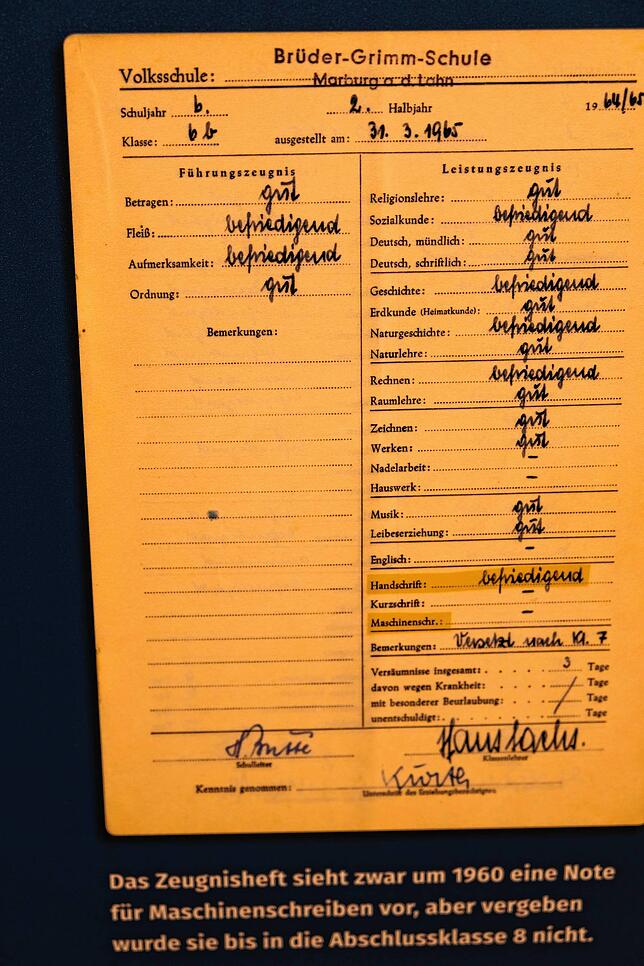 Brüder-Grimm-Schule
Volksschule:
Marburg a. d. Lahn
Schuljahr 6. 2. Halbjahr 1964/65
Klasse: 6b ausgestellt am: 31. 3. 1965
Führungszeugnis
Betragen: gut
Fleiß: befriedigend
Aufmerksamkeit: befriedigend
Ordnung: gut
Bemerkungen:
Leistungszeugnis
Religionslehre: gut
Sozialkunde: befriedigend
Deutsch, mündlich: gut
Deutsch, schriftlich: gut
Geschichte: befriedigend
Erdkunde (Heimatkunde): gut
Naturgeschichte: befriedigend
Naturlehre: gut
Rechnen: befriedigend
Raumlehre: gut
Zeichnen: gut
Werken: gut
Nadelarbeit: –
Hauswerk: –
Musik: gut
Leibeserziehung: gut
Englisch: –
Handschrift: befriedigend
Kurzschrift: –
Maschinenschr.: –
Bemerkungen: Versetzt nach Kl. 7
Versäumnisse insgesamt: 3 Tage
davon wegen Krankheit: Tage
mit besonderer Beurlaubung: Tage
unentschuldigt: Tage
Schulleiter
Klassenlehrer
Kenntnis genommen:
Unterschrift des Erziehungsberechtigten
Das Zeugnisheft sieht zwar um 1960 eine Note
für Maschinenschreiben vor, aber vergeben
wurde sie bis in die Abschlussklasse 8 nicht.